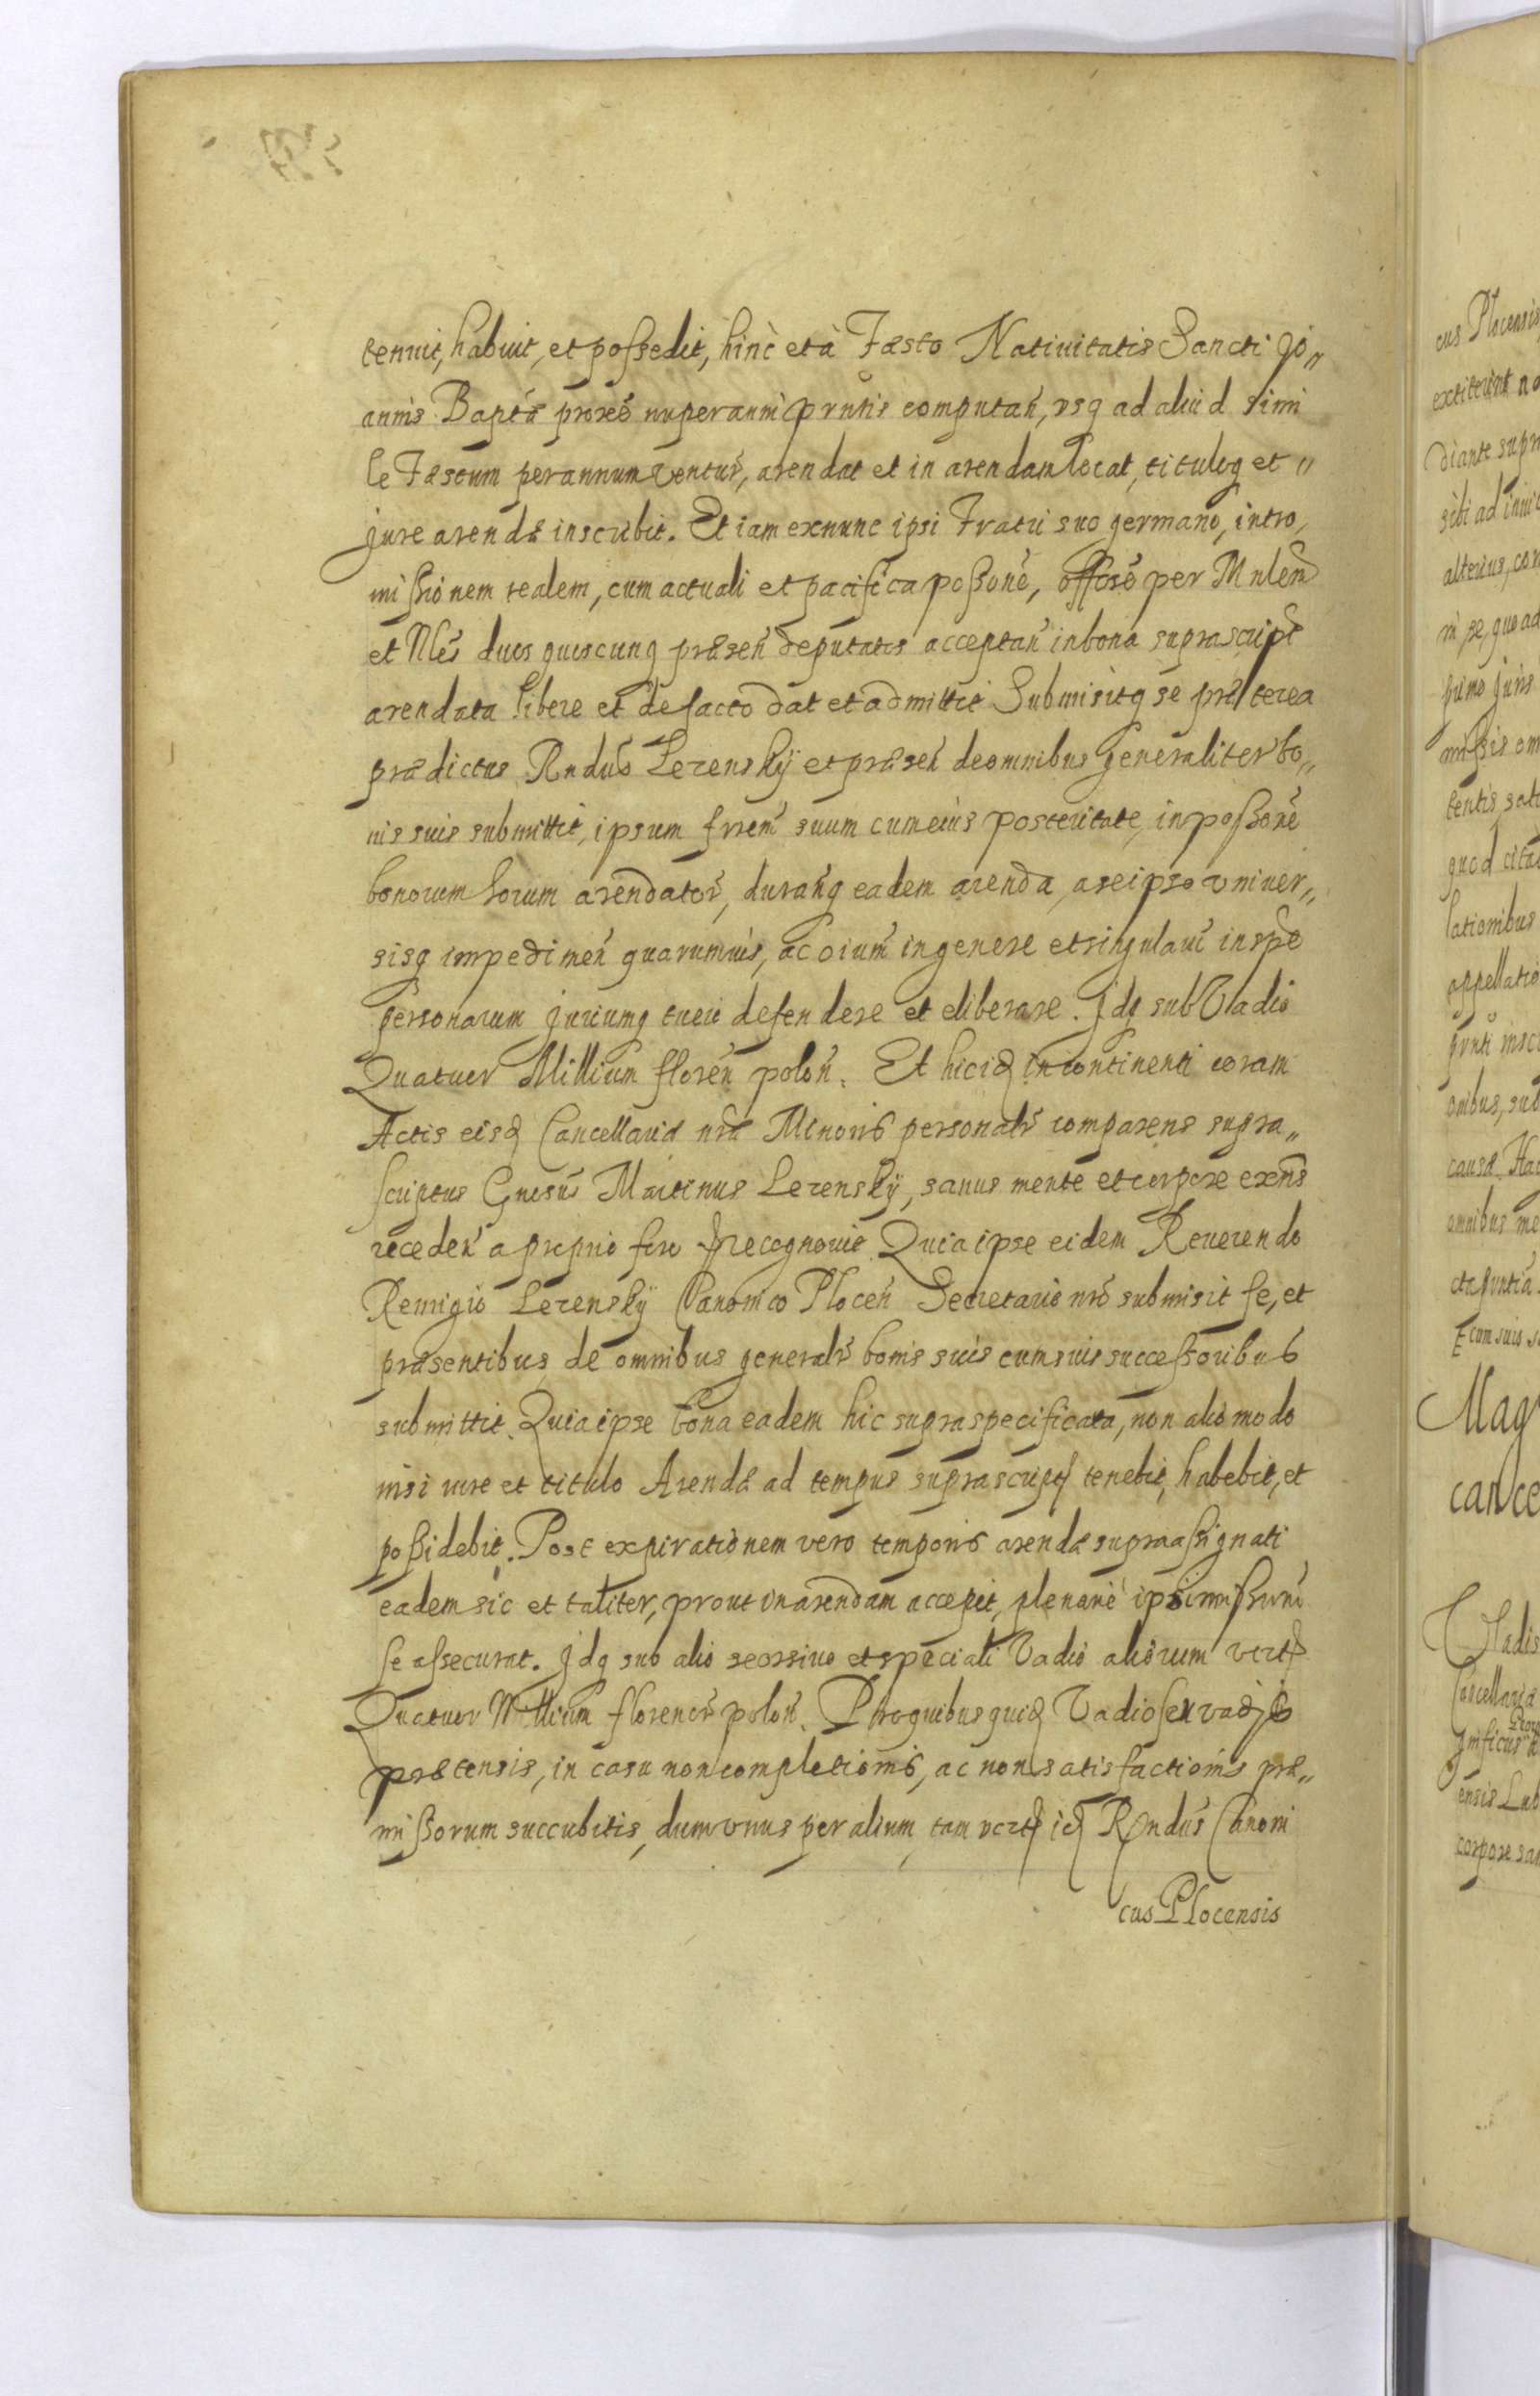 tenuit, habuit, et possedit, hinc et à Fæsto Natiuitatis Sancti Jo„
annis Baptæ proxe nuper anni prntis computań, vsq ad aliud simi
le Fæstum per annum ventur, arendat et in arendam locat, tituloq et „
jure arendæ inscribit. Et iam ex nunc ipsi Fratri suo germano, intro,
missionem realem, cum actuali et pacifica possone, per Mnlem
et Nles duos quoscunq præsen deputatos acceptan in bona suprascript
arendata libere et de facto dat et admittit Submisitq se præterea
prædictus Rndus Lezenskÿ et præsen de omnibus generaliter bo„
nis suis submittit, ipsum frrem suum cum eius posteritate, in possone
bonorum horum arendator, duranq eadem arenda, a se ipso vniuer„
sisq impedimen quarumuis, ac oium in genere et singulari in spe
personarum juriumq tueri defendere et eliberare. Jdq sub Vadio
Quatuor Millium floren polon. Et hic id incontinenti coram
Actis eisd Cancellariæ nræ Minoris personalr comparens supra„
scriptus Gnesus Martinus Lezenskÿ, sanus mente et corpore exns
receden a proprio foro recognouit Quia ipse eidem Reuerendo
Remigio Lezenskÿ Canonico Plocen Secretario nro submisit se, et
præsentibus de omnibus generalr bonis suis cum suis successoribus
submittit. Quia ipse bona eadem hic supra specificata, non alio modo
nisi iure et titulo Arendæ ad tempus suprascript tenebit, habebit, et
possidebit. Post expirationem vero temporis arendæ supra assignati
eadem sic et taliter, prout in arendam accepit, plenarie ipsi
se assecurat. Jdq sub alio seorsiuo et speciali Vadio aliorum vert
Quatuor Millium florenor polon. Pro quibus quid Vadio seu vadijs
prætensis, in casu non completionis, ac non satisfactionis præ„
missorum succubitis, dum vnus per alium, tam vert id Rndus Canoni
cus Plocensis
cus Plocensis
extiterint no
diante supr
sibi ad
alterius, con
ni se, quo ad
juris
missis om
tentis, sati
quod cita
lationibus
appellatio
prnti inscr
onibus, sub
causæ. Hac
omnibus me
Et cum suis
Mag
cance
Vladis
Cancellaria
gnificus
ensis Lub
corpore san